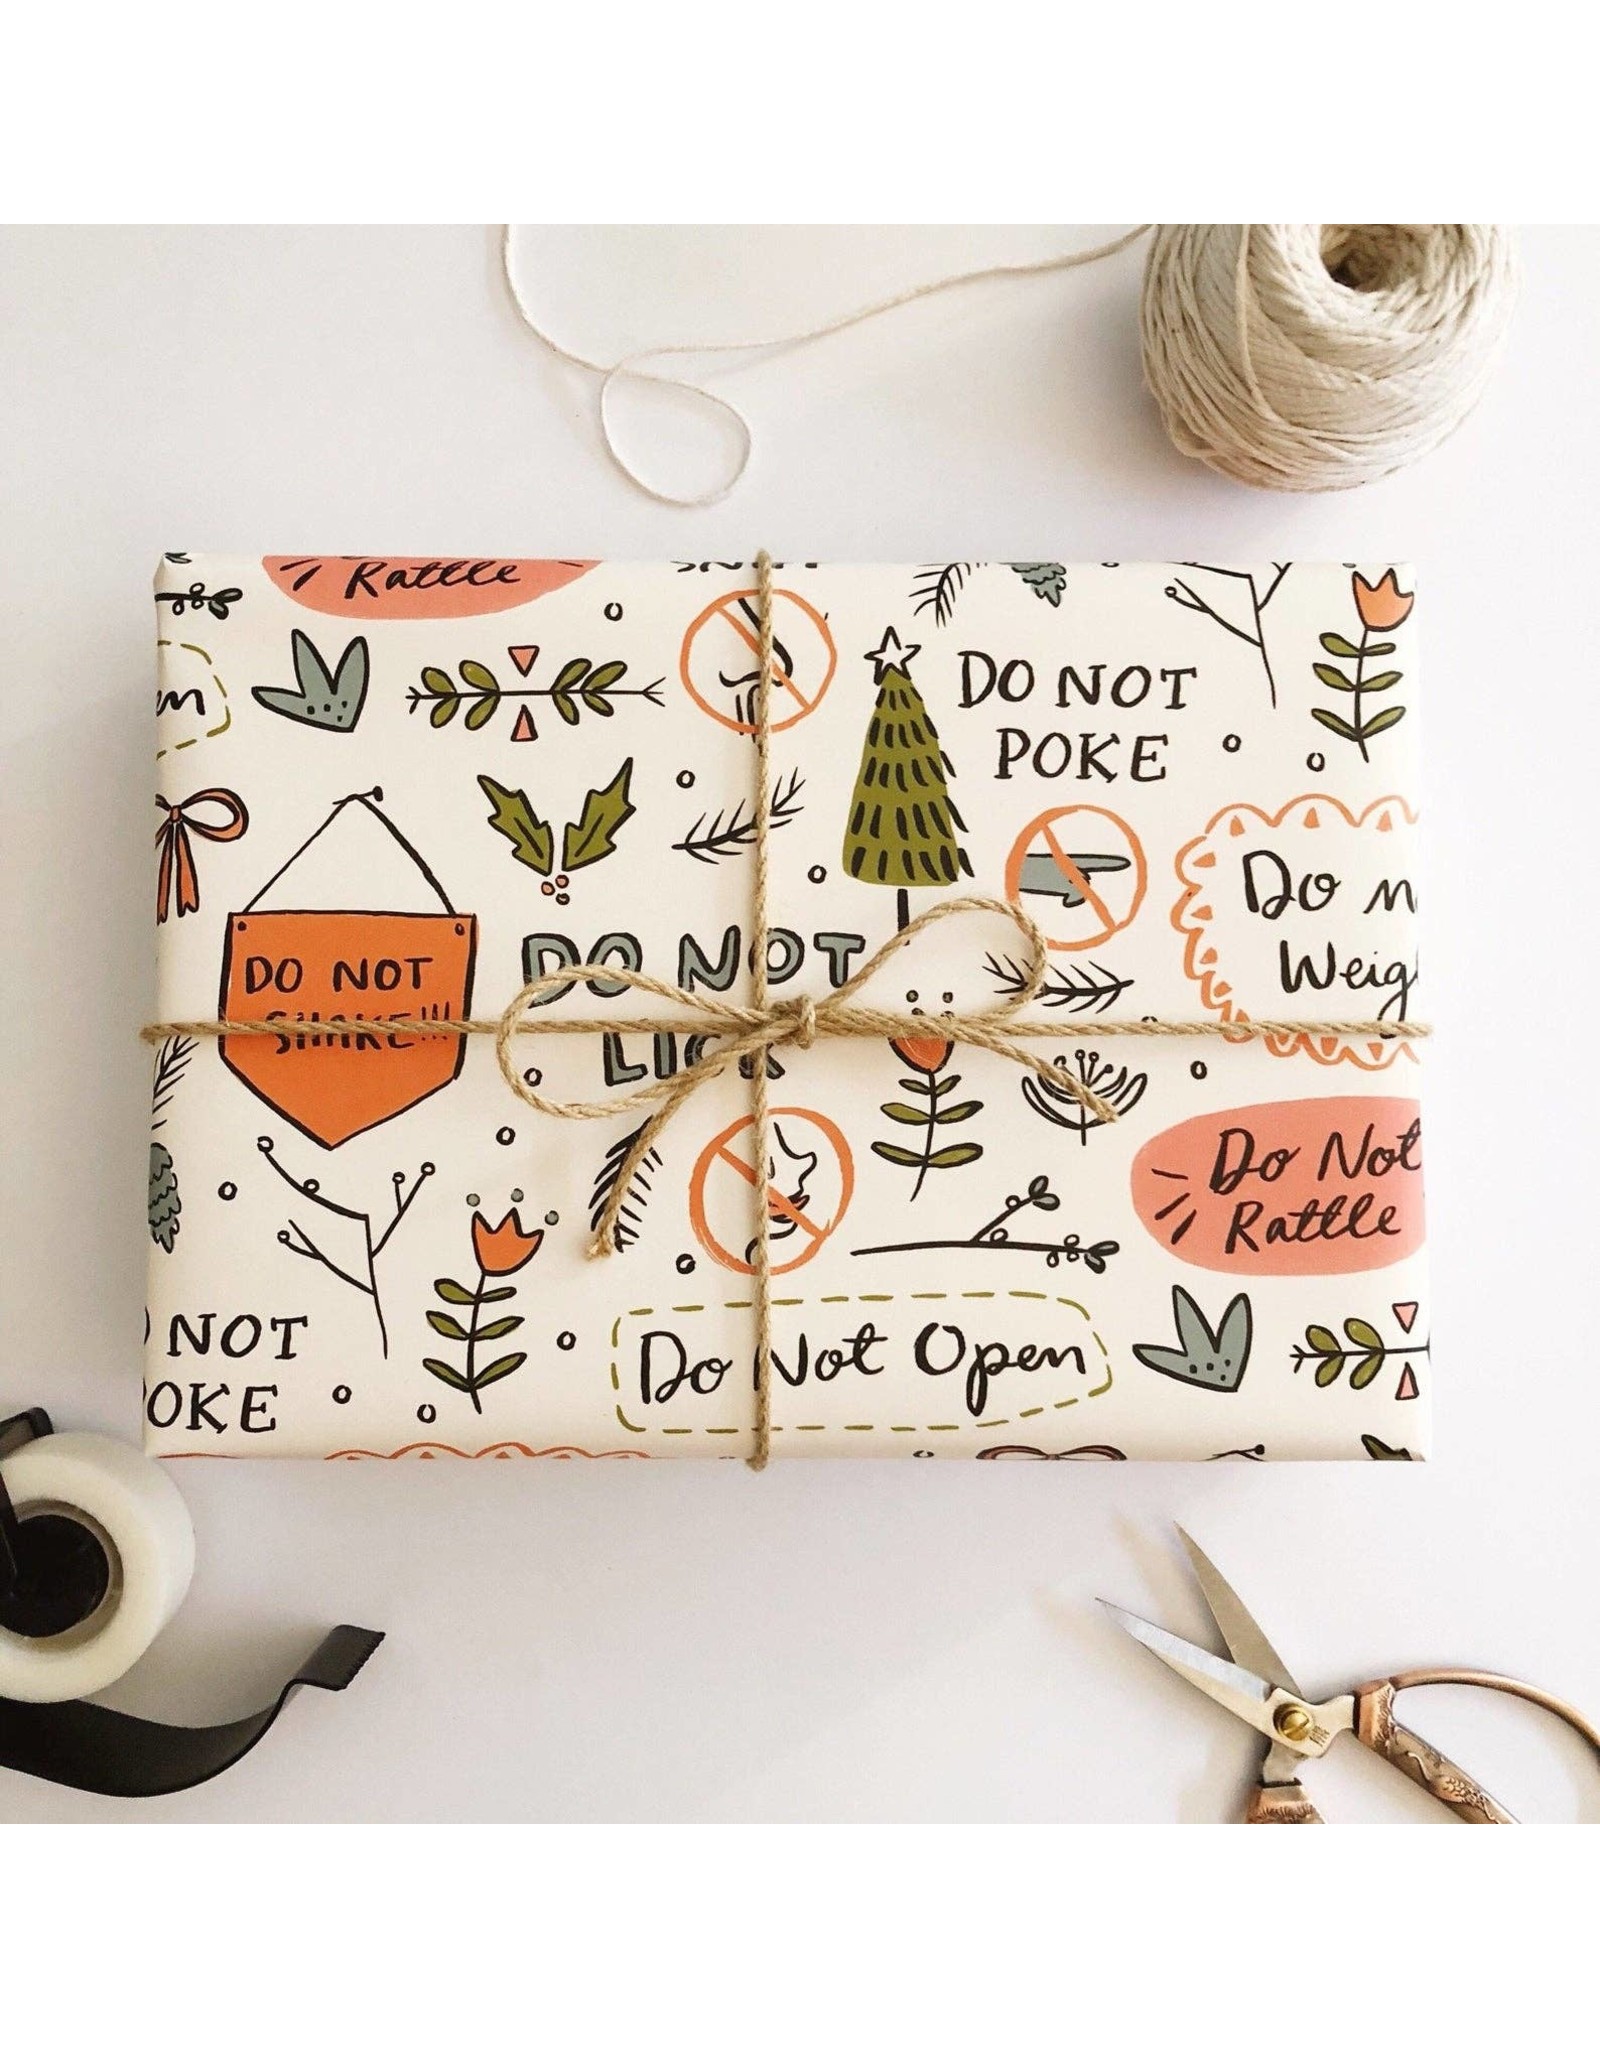 Rattle
DO NOT
POKE
DO NOT
SHAKE!!!
DO NOT
LICK
Do n
Weig
Do Not
Rattle
NOT
OKE
Do Not Open
en